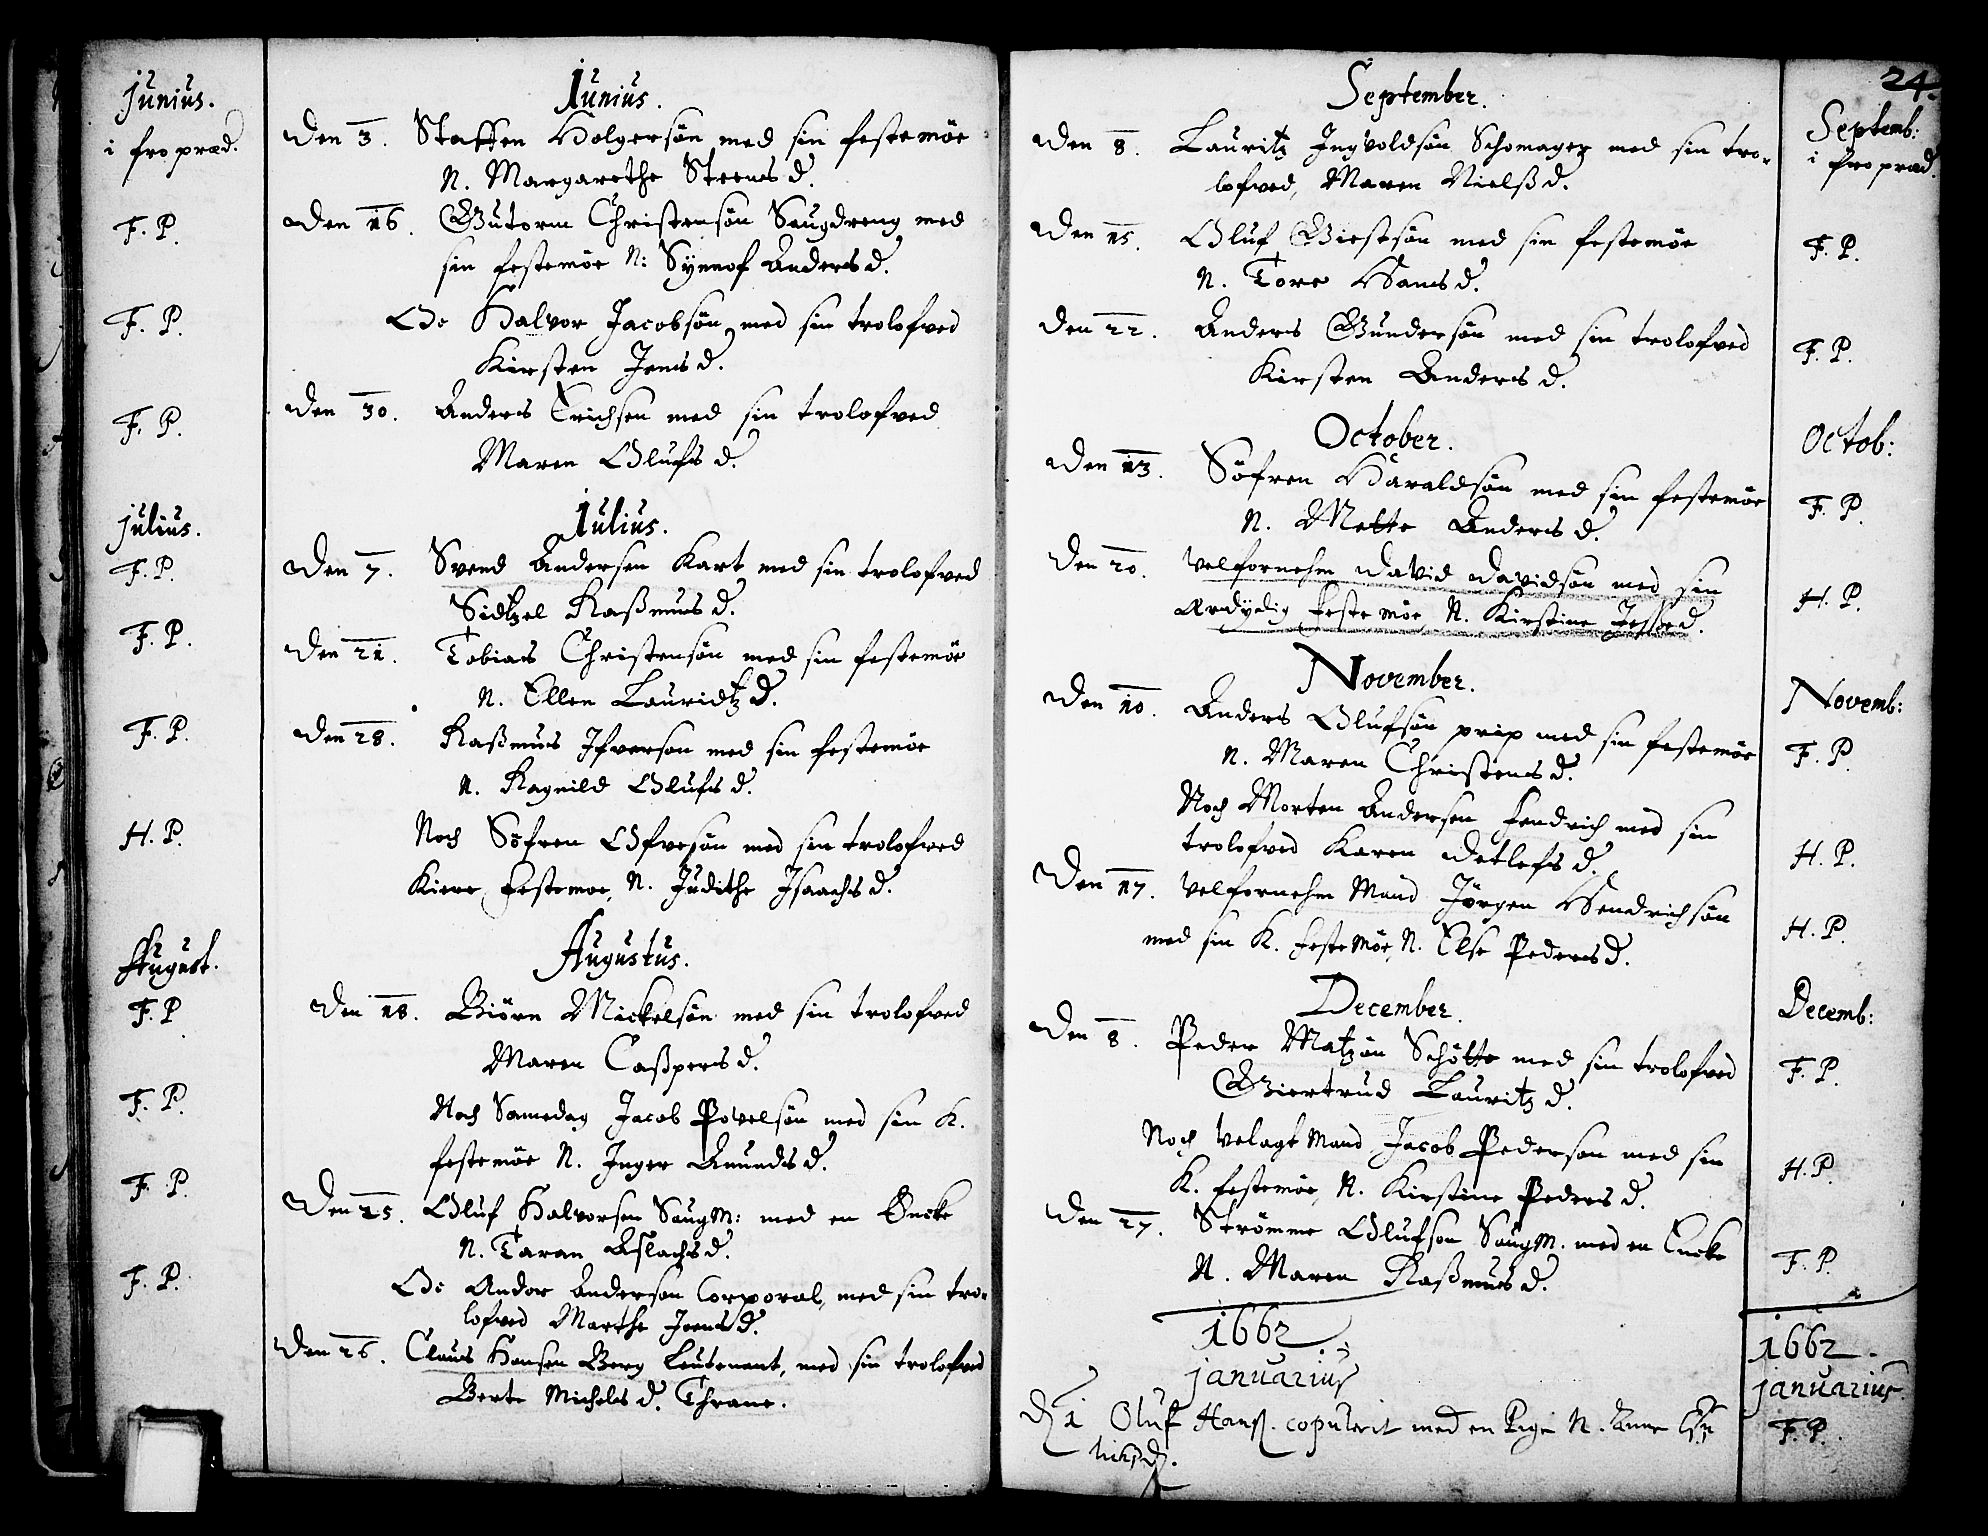 Junius.
i fro præd.
F. P.
F. P.
F. P.
Julius.
F. P.
F. P.
F. P.
H. P.
August.
F. P.
F. P.
F. P.
F. P.
Junius.
Den 3. Staffen Holgersøn med sin festemøe
N. Margarethe Steens d.
Den 16. Gutorm Christensøn Saugdreng med
sin festemøe N: Synnof Anders d.
Oc Halvor Jacobsøn med sin trolofved
Kirsten Jens d.
Den 30. Anders Erichsen med sin trolofved
Maren Olufs d.
Julius.
Den 7. Svend Andersen Kart med sin trolofved
Sidtzel Raßmus d.
Den 21. Tobias Christensøn med sin festemøe
N. Ellen Lauridtz d.
Den 28. Raßmus Ifversøn med sin festemøe
N. Ragnild Olufs d.
Noch Søfren Ofvesøn med sin trolofved
Kiere festemøe, N. Judithe Isaachs d.
Augustus.
Den 18. Biørn Mickelsøn med sin trolofved
Maren Caßpers d.
Noch Samedag Jacob Povelsøn med sin K.
festemøe N. Inger Amunds d.
Den 25. Oluf Halvorsen Saugm: med en Encke
N. Taran Aslachs d.
Oc Andor Andersøn Corporal, med sin tro-
lofved Marthe Jens d.
Den 26. Claus Hansen Berg Leutenant, med sin trolofved
Berte Michels d. Thrane.
September.
Den 8. Lauritz Ingvoldsøn Schomager med sin tro-
lofved, Maren Nielß d.
Den 15. Oluf Giestsøn med sin festemøe
N. Tore Hans d.
Den 22. Anders Gundersøn med sin trolofved
Kirsten Anders d.
October.
Den 13. Søfren Haraldsøn med sin festemøe
N. Mette Anders d.
Den 20. Velfornehm David Davidsøn med sin
Ærdydig feste møe, N. Kirstine d.
November.
Den 10. Anders Olufsøn prip med sin festemøe
N. Maren Christens d.
Noch Morten Andersen Fendrich med sin
trolofved Karen Detlefs d.
Den 17. Velfornehm Mand Jørgen Hendrichsøn
med sin K. feste Møe, N. Else Peders d.
December.
Den 8. Peder Matzøn Schøtte med sin trolofved
Giertrud Lauritz d.
Noch Velagt Mand Jacob Pedersøn med sin
K. festemøe, N. Kirstine Peders d.
Den 27. Strømme Olufsøn Saugm. med en Encke
N. Maren Raßmus d.
1662.
januarius
D 1 Oluf Hanß. copulerit med en Pige N. Anne
24.
Septemb:
i fro præd.
F. P.
F. P.
Octob:
F. P.
H. P.
Novemb:
F. P.
H. P.
H. P.
Decemb:
F. P.
H. P.
F. P.
1662.
januarius
F. P.